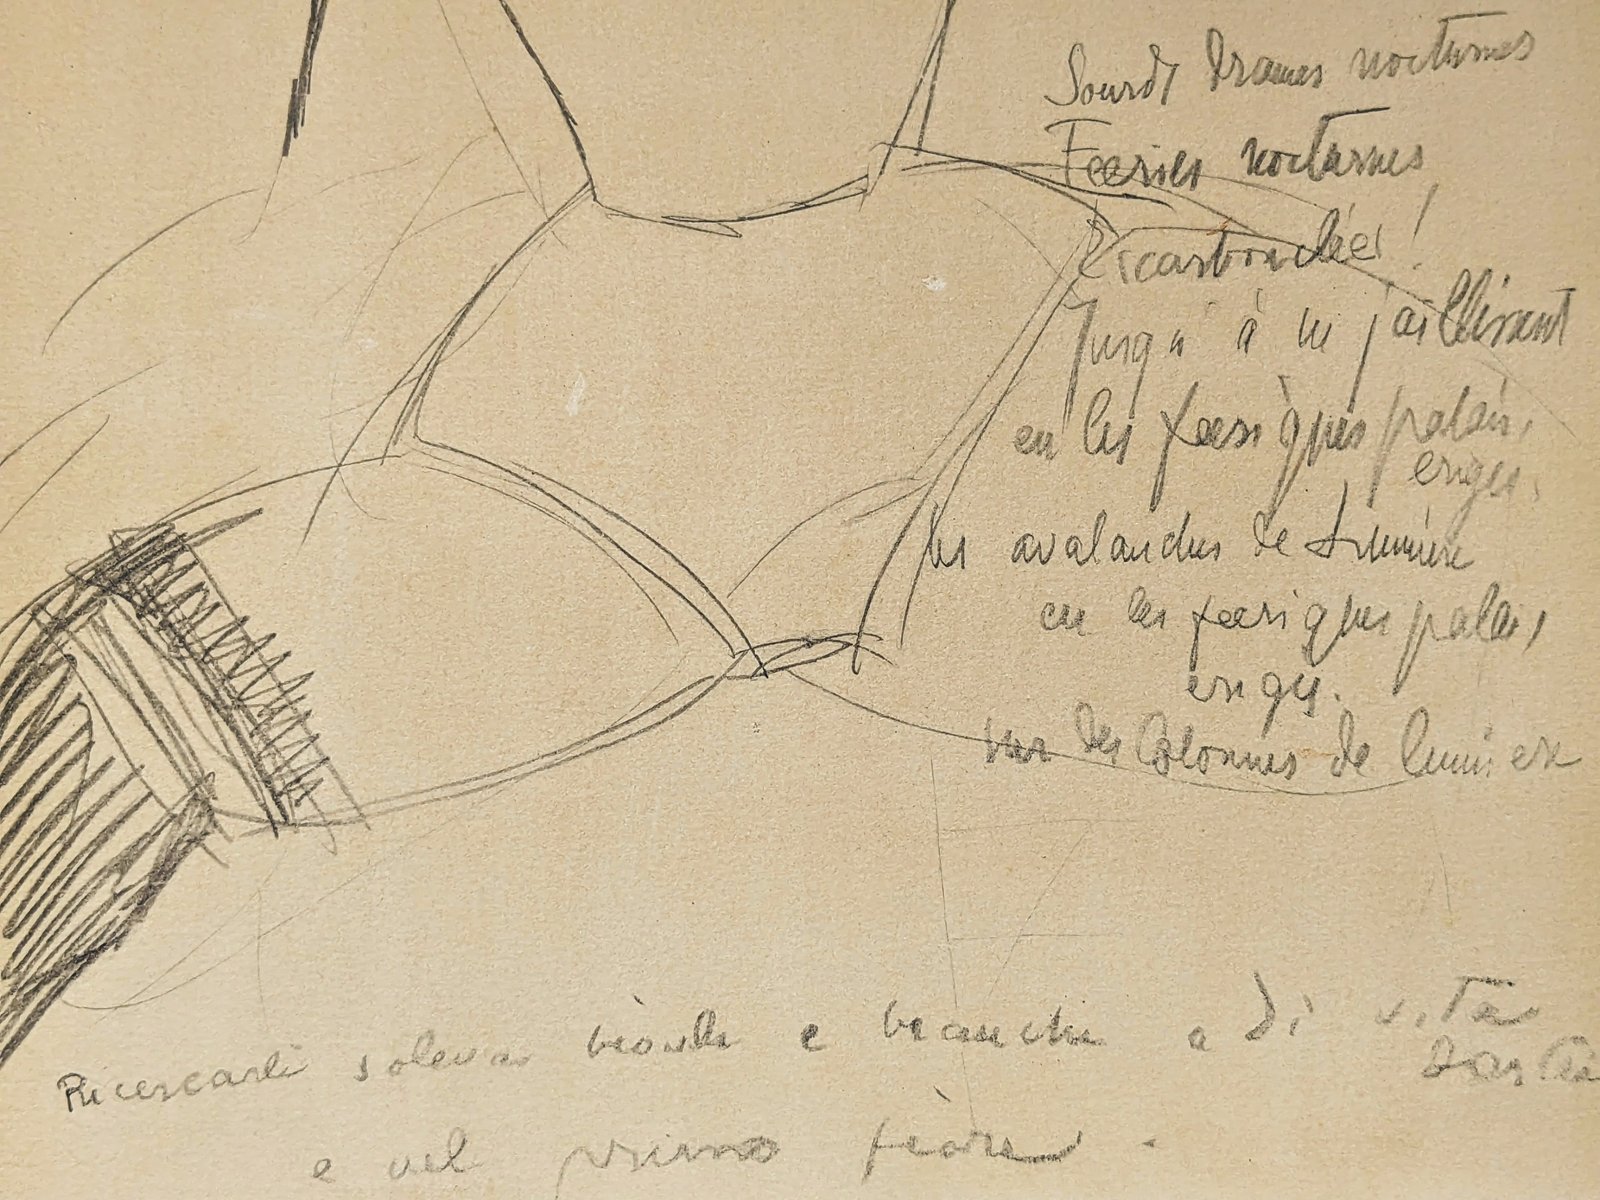 Sourds drames nocturnes
Feeries nocturnes
Escarbouclées!
Jusqu'à un jaillissant
en les feeriques palais,
eriges.
les avalanches de Lumiere
en les feeriques palais,
eriges.
sur des Colonnes de lumiere
Ricercarli soleva bionde e bianche e di vita
e nel primo fiore.